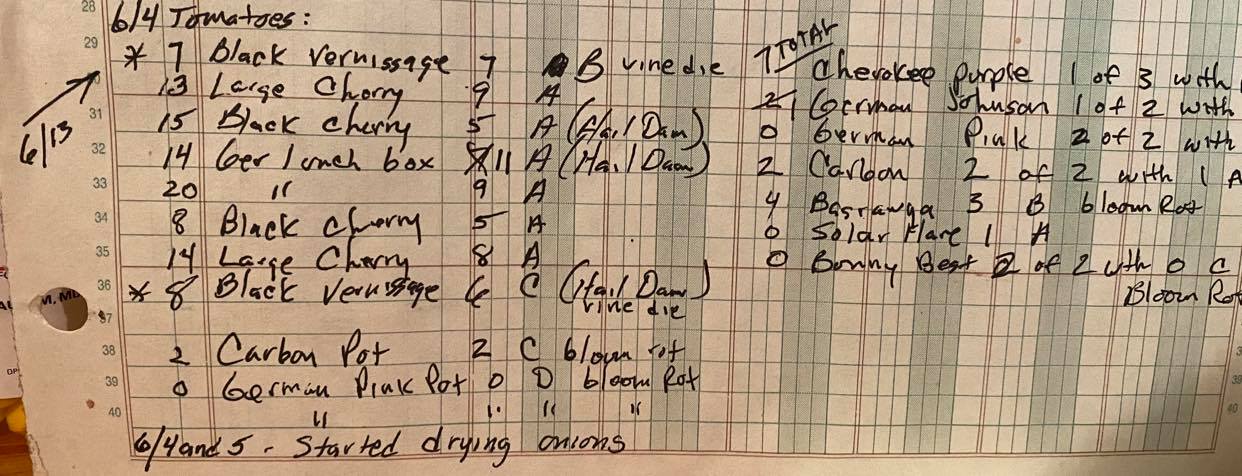 28 6/4 Tomatoes:
29 * 7 Black Vernissage 7 B vine die 7 TOTAL Cherokee Purple 1 of 3 with
13 Large Cherry 9 A 2 1 German Johnson 1 of 2 with
6/13
31 15 Black Cherry 5 A (Hail Dam) 0 German Pink 2 of 2 with
32 14 Ger lunch box 11 A (Hail Dam) 2 Carbon 2 of 2 with 1 A
33 20 " 9 A 4 3 B bloom Rot
34 8 Black Cherry 5 A 0 Solar Flare 1 A
35 14 Large Cherry 8 A 0 Bonny Best 2 of 2 with 0 C
36 * 8 Black Vernissage 6 C (Hail Dam) Bloom Rot
M, MD
37 vine die
38 2 Carbon Pot 2 C bloom rot
39 0 German Pink Pot 0 D bloom Rot
40 " " " "
6/4 and 5 - Started drying onions